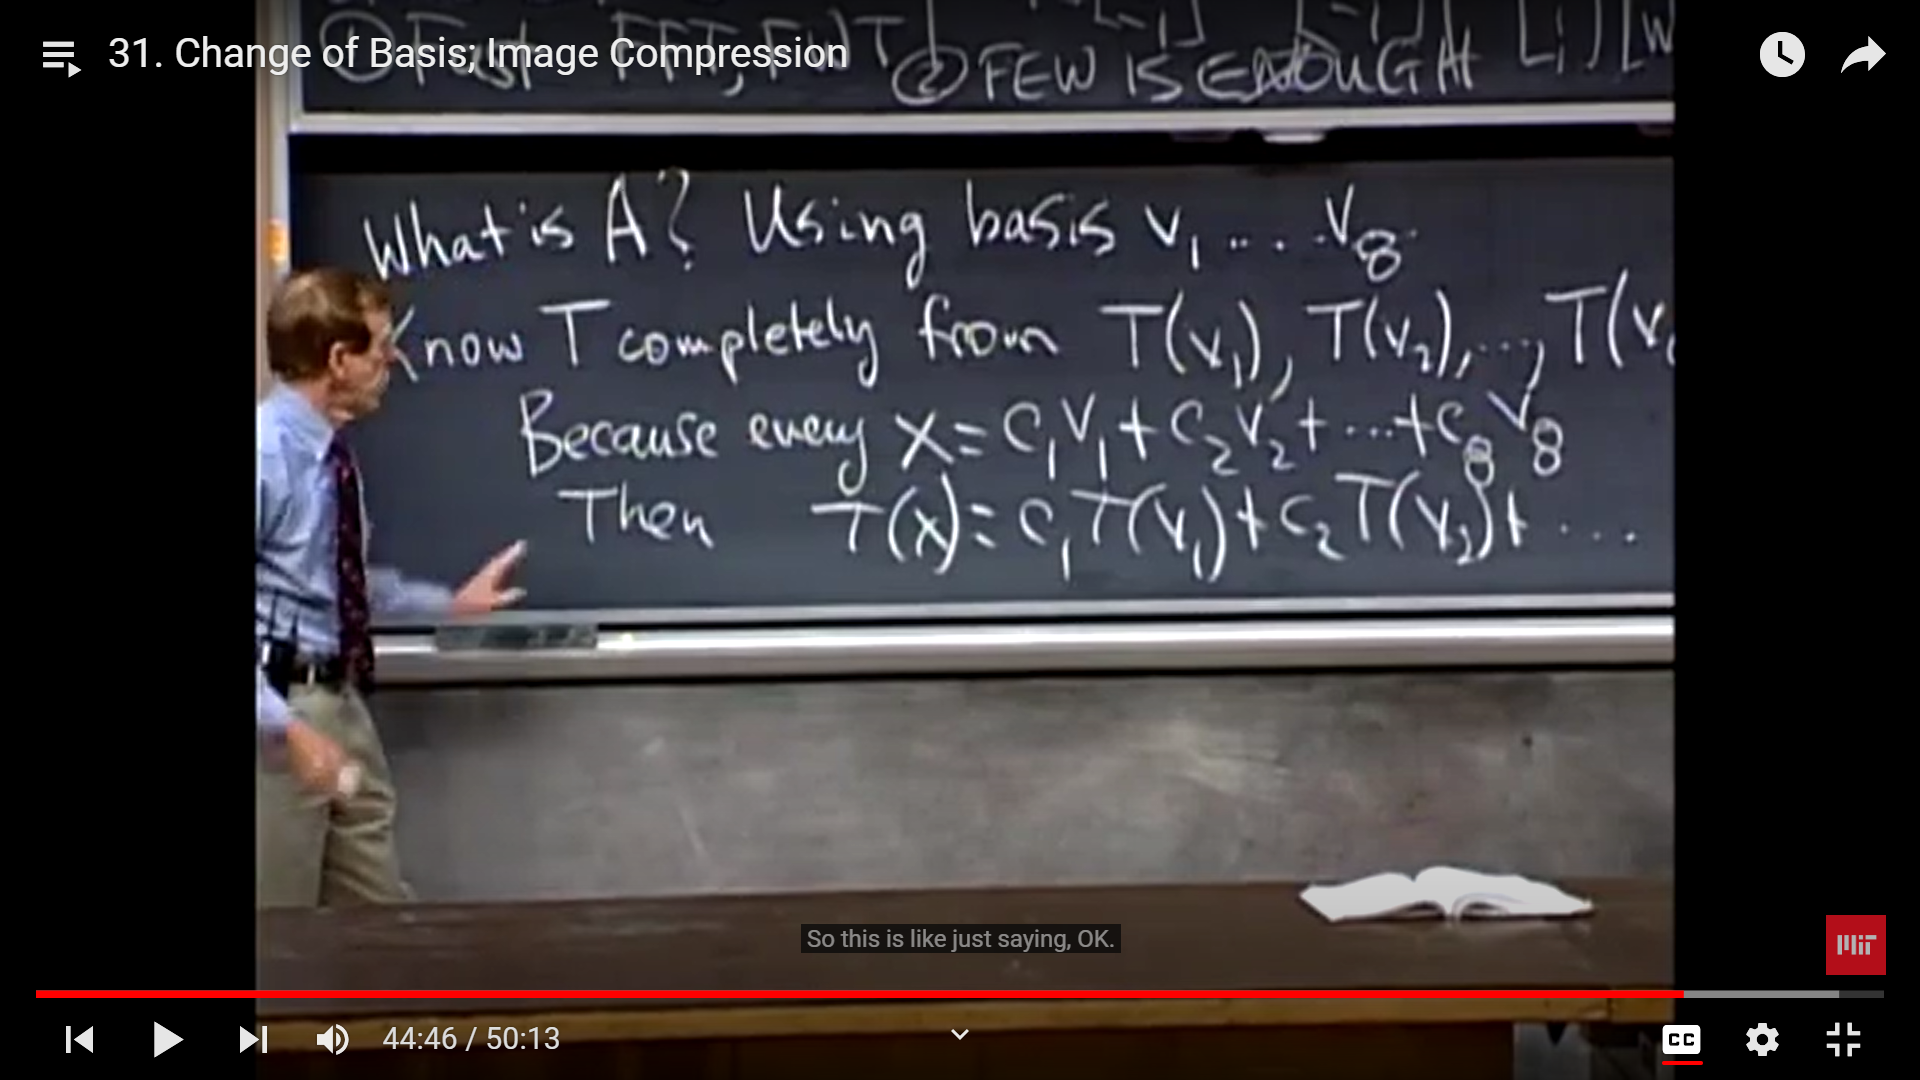 31. Change of Basis; Image Compression
① Fast FFT, FWT ② FEW IS ENOUGH
What is A? Using basis v₁ ... v₈
Know T completely from T(v₁), T(v₂), ..., T(v
Because every x = c₁v₁ + c₂v₂ + ... + c₈v₈
Then T(x) = c₁T(v₁) + c₂T(v₂) + ....
So this is like just saying, OK.
MIT
44:46 / 50:13
CC